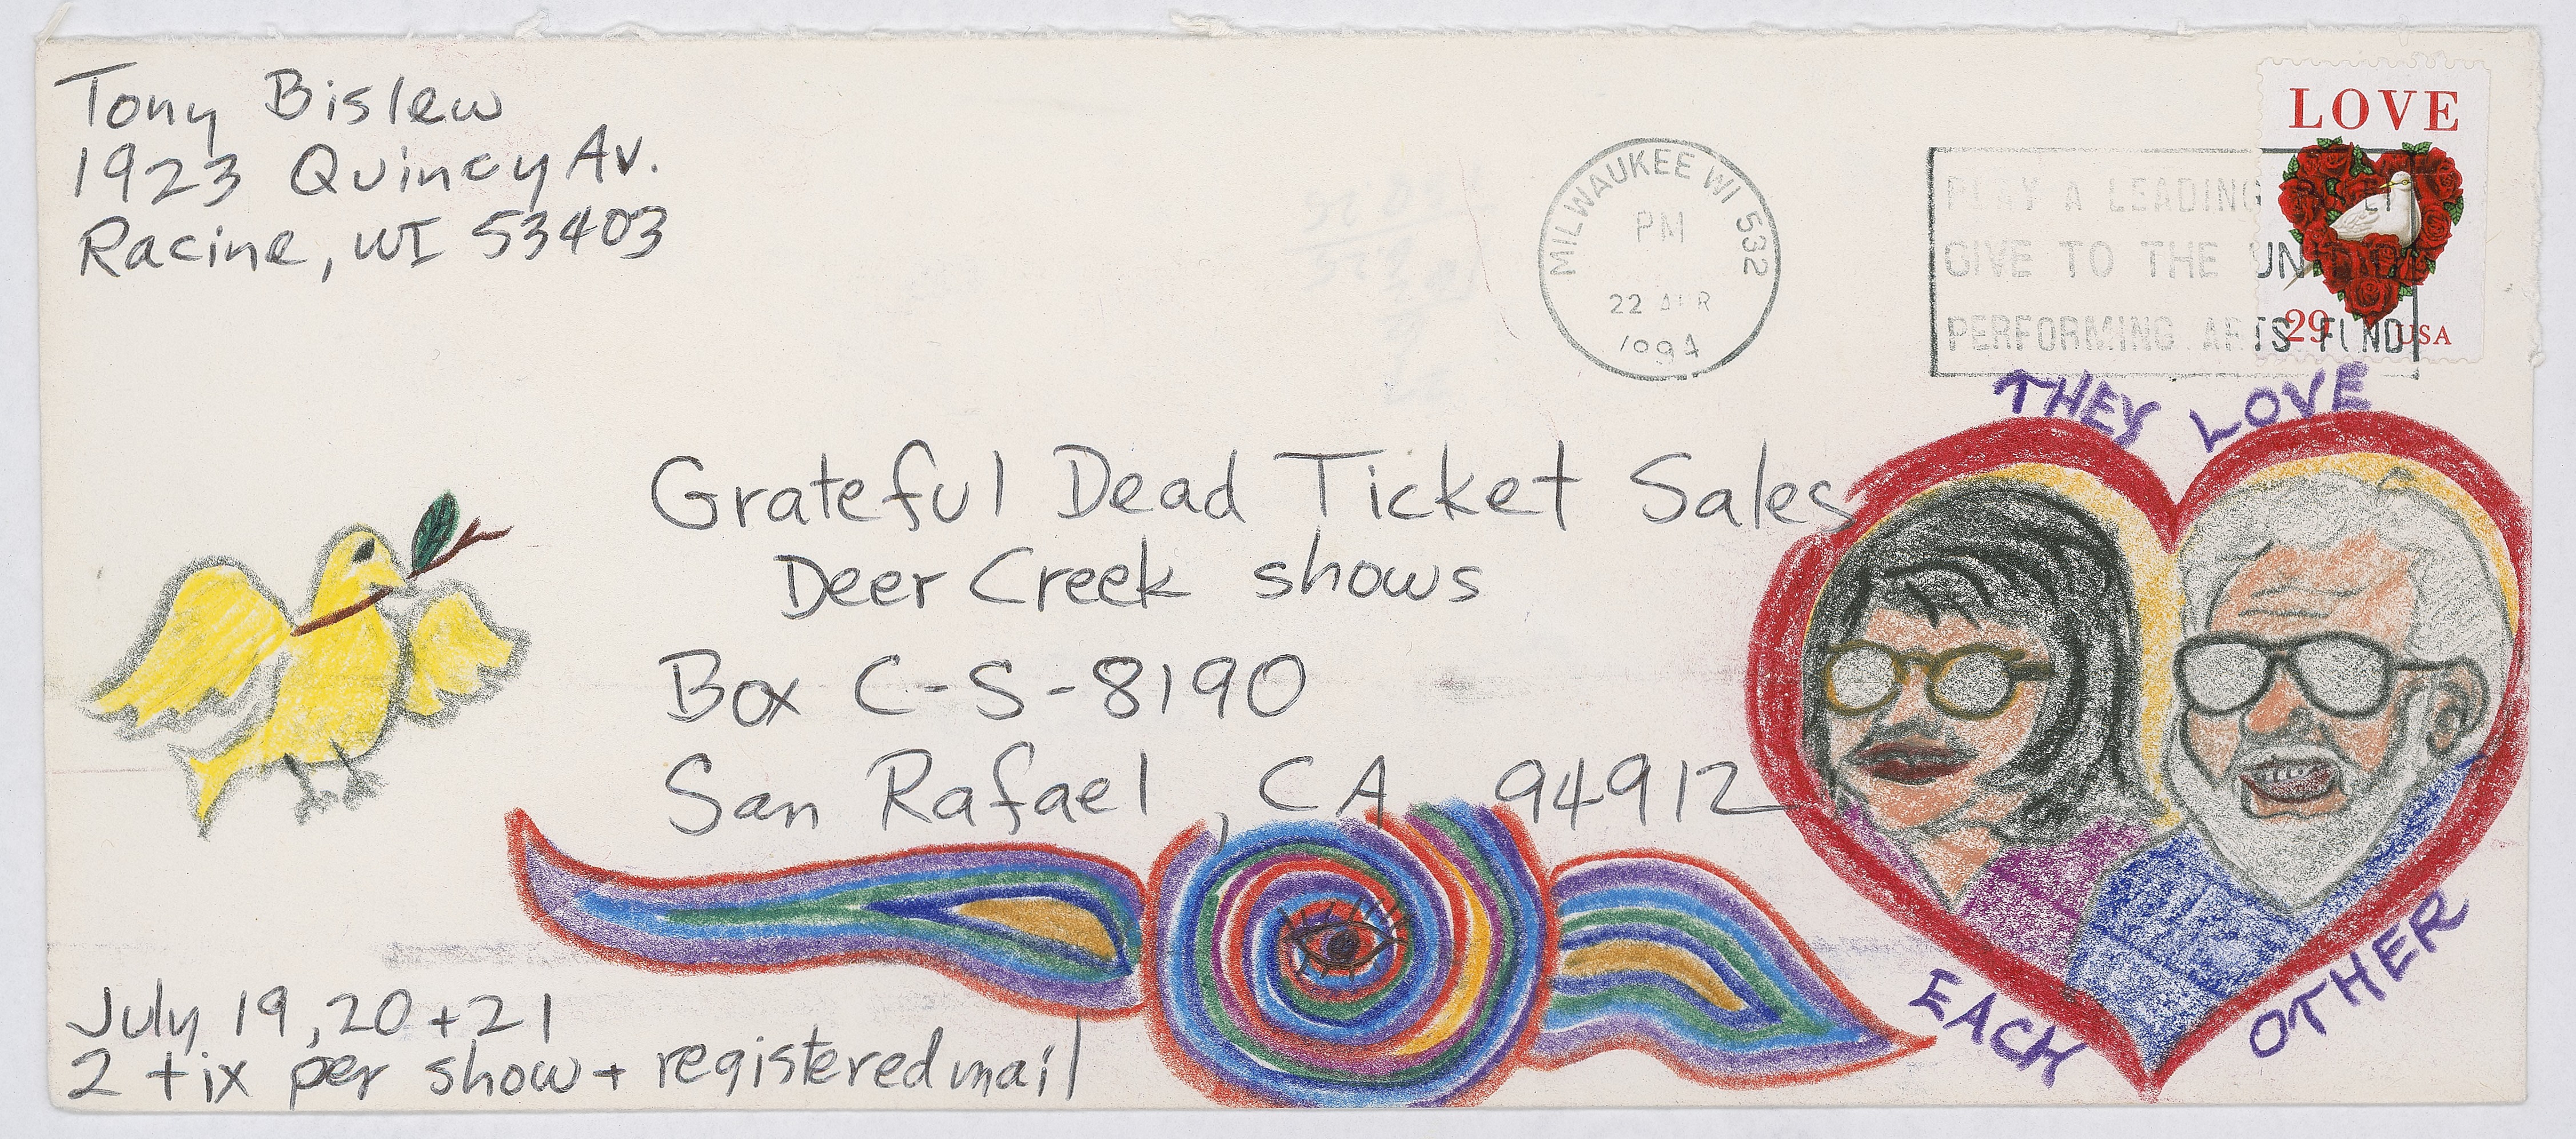 Tony Bislew
1923 Quincy Av.
Racine, WI 53403
MILWAUKEE WI 532
PM
22 APR
1994
PLAY A LEADING
GIVE TO THE UNITED
PERFORMING ARTS FUND
LOVE
29 USA
Grateful Dead Ticket Sales
Deer Creek shows
Box C-S-8190
San Rafael, CA 94912
THEY LOVE
EACH OTHER
July 19, 20 + 21
2 tix per show + registered mail